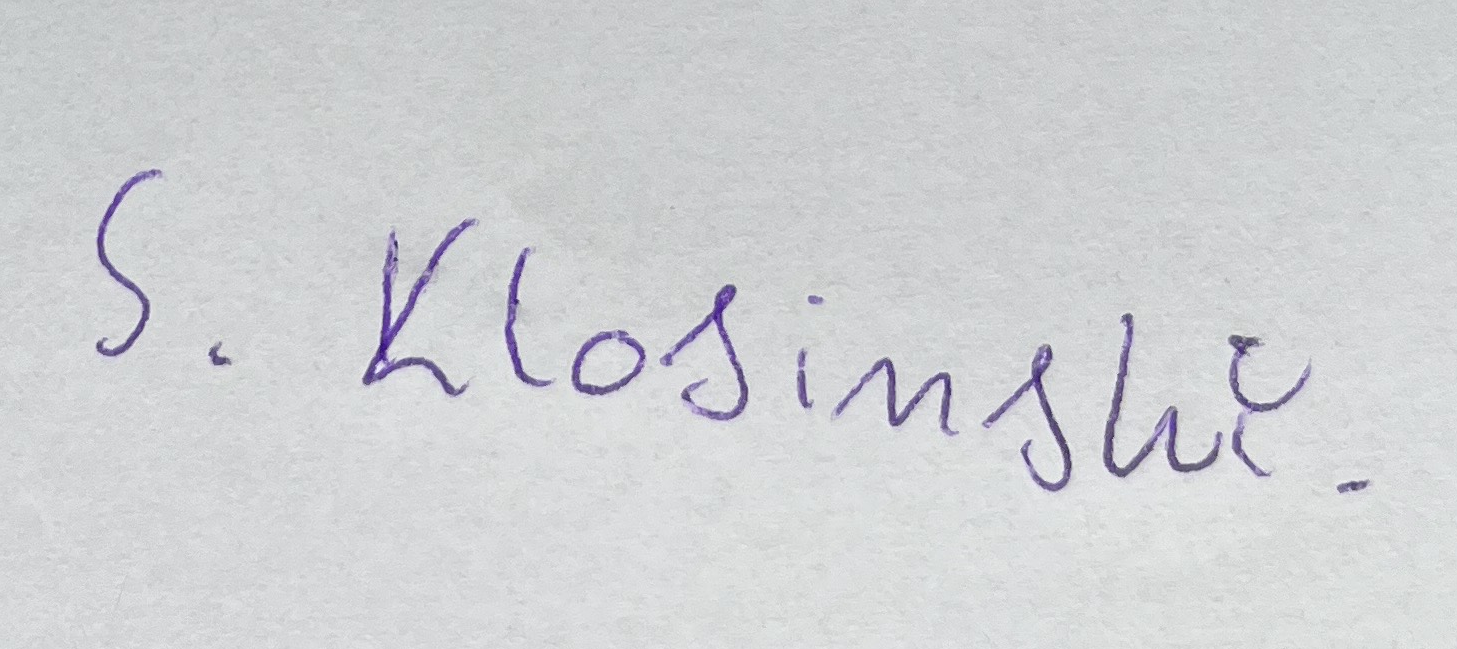 S. Klosinskĭ.